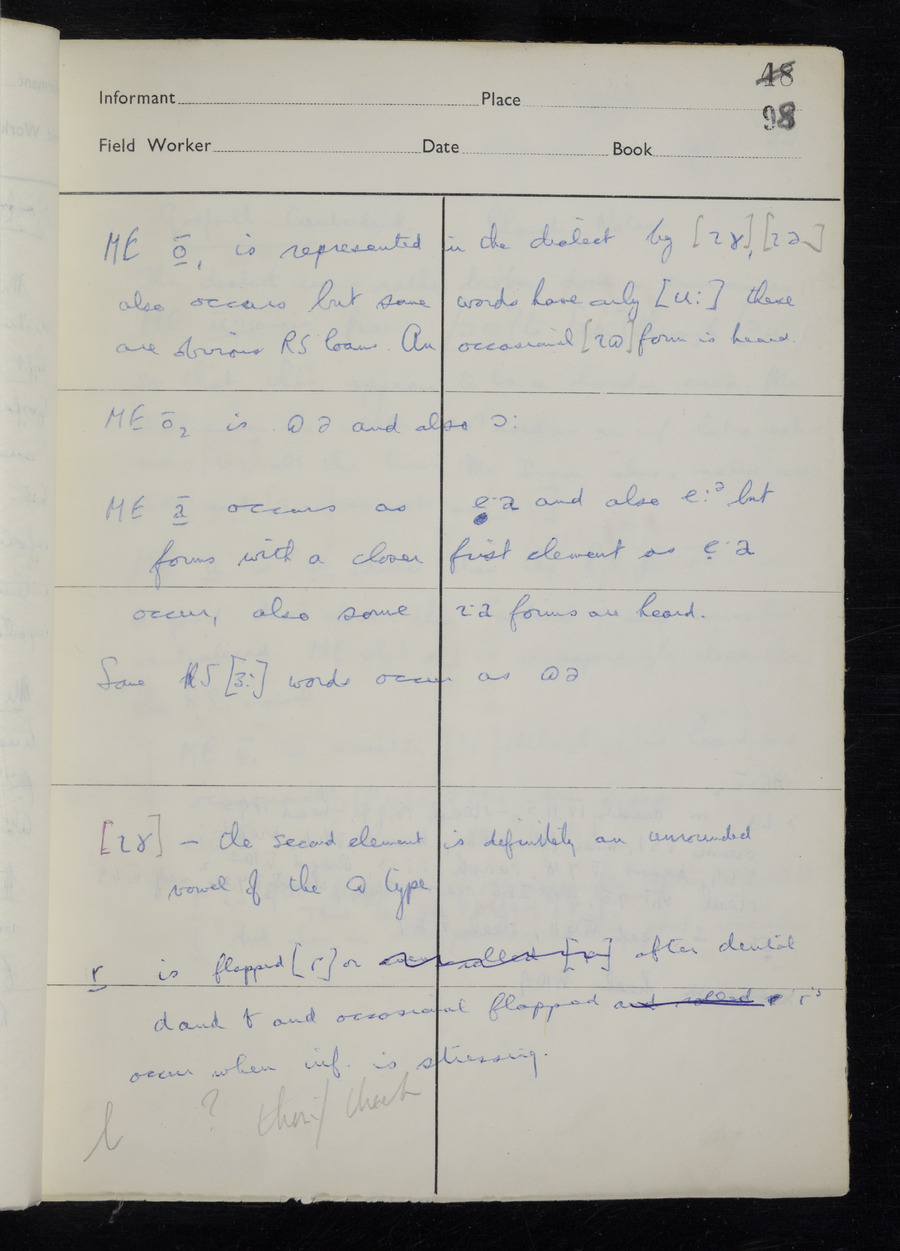 48
98
Informant Place
Field Worker Date Book
ME ō₁ is represented in the dialect by [ɪɤ], [ɪə]
also occurs but some words have only [u:] these
are obvious RS loans. An occasional [ɪɷ] form is heard.
ME ō₂ is ɷə and also ɔ:
ME ā occurs as e·ə and also e:ᵊ but
forms with a closer first element as ẹ·ə
occur, also some ɪ·ə forms are heard.
Some RS [ɜ:] words occur as ɷə
[ɪɤ] – the second element is definitely an unrounded
vowel of the ɷ type
r is flapped [ɾ] or even rolled [r] after dental
d and t and occasional flapped and rolled r ɾ's
occur when inf. is stressing.
l ? check